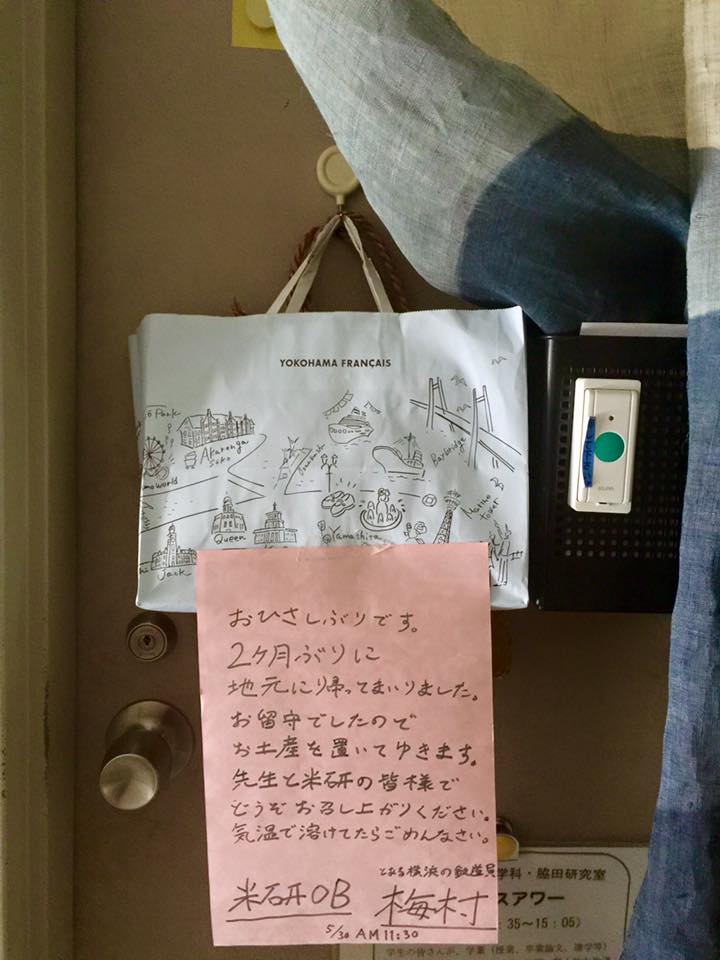 YOKOHAMA FRANÇAIS
Park
Akarenga
Soko
Baybridge
Marine
Tower
Queen
@Yamashita
Jack
おひさしぶりです。
2ヶ月ぶりに
地元に帰ってまいりました。
お留守でしたので
お土産を置いてゆきます。
先生と米研の皆様で
どうぞお召し上がりください。
気温で溶けてたらごめんなさい。
とある横浜の鉄道員
米研OB 梅村
5/30 AM11:30
学科・脇田研究室
スアワー
35~15:05)
学生の皆さんが、学業(授業、卒業論文、進学等)